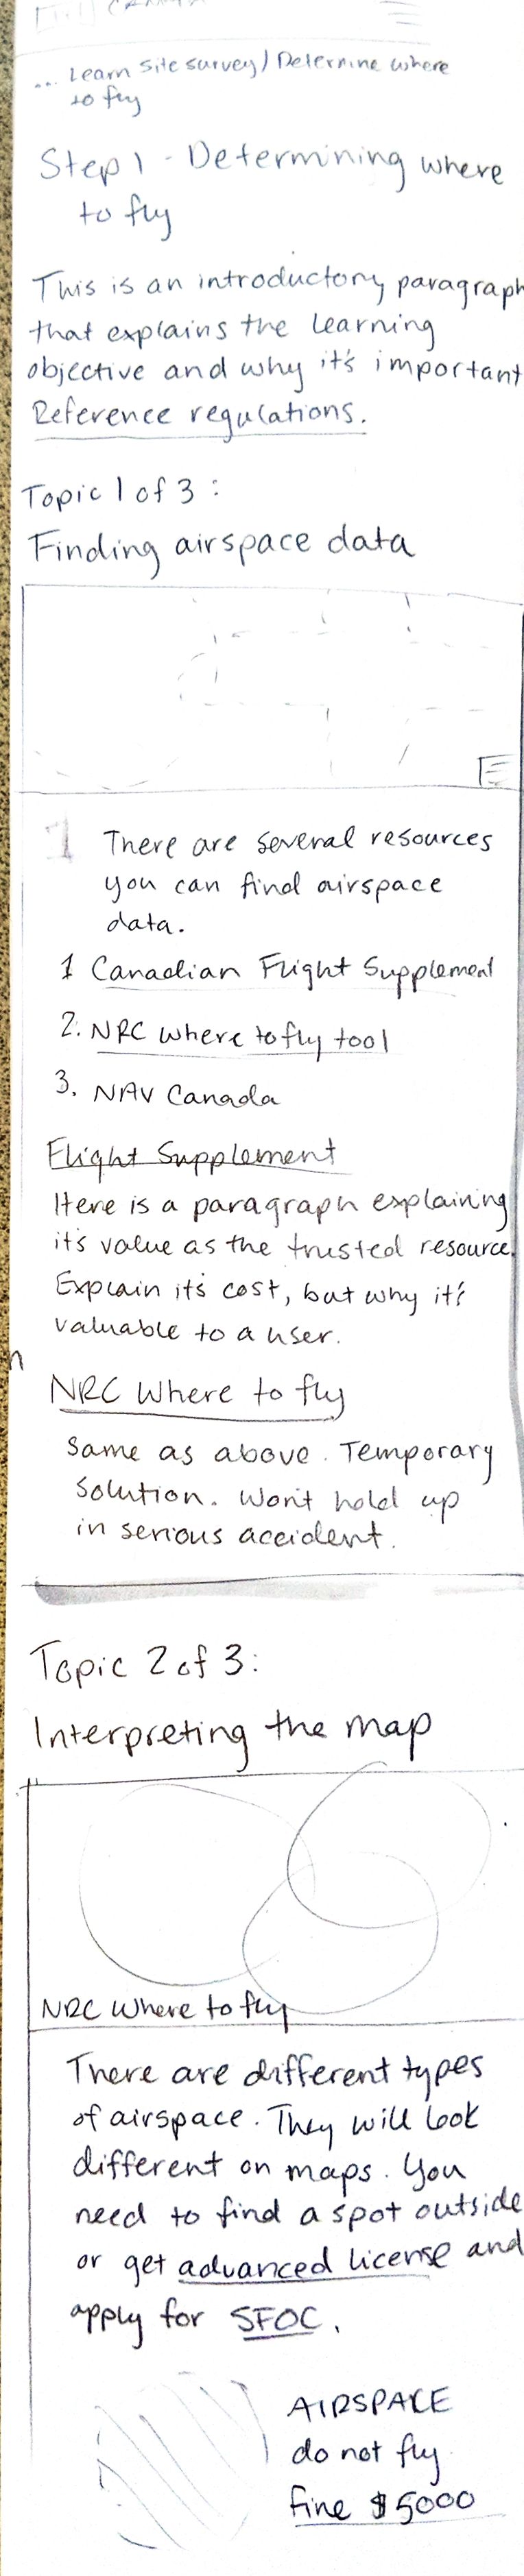 ... Learn site survey / Determine where
to fly
Step 1 - Determining where
to fly
This is an introductory paragraph
that explains the learning
objective and why it's important
Reference regulations.
Topic 1 of 3:
Finding airspace data
1 There are several resources
you can find airspace
data.
1 Canadian Flight Supplement
2. NRC where to fly tool
3. NAV Canada
Flight Supplement
Here is a paragraph explaining
it's value as the trusted resource.
Explain it's cost, but why it's
valuable to a user.
NRC Where to fly
Same as above. Temporary
Solution. Won't hold up
in serious accident.
Topic 2 of 3:
Interpreting the map
NRC Where to fly
There are different types
of airspace. They will look
different on maps. You
need to find a spot outside
or get advanced license and
apply for SFOC.
AIRSPACE
do not fly
fine $5000